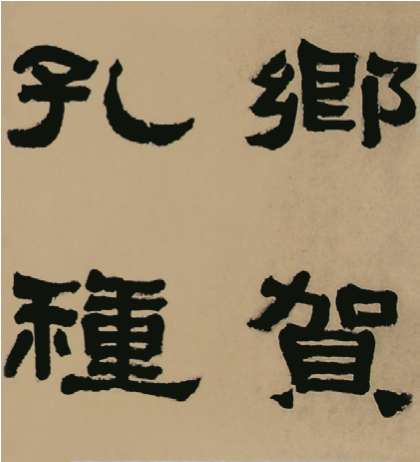 鄉賀
孔種